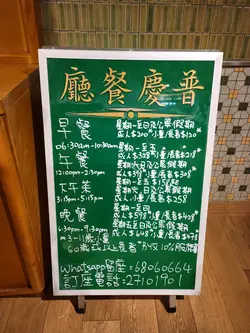 廳餐慶普
早餐
星期一至日及公眾假期
成人$200* 小童/長者$120*
06:30am-10:30am
午餐
星期一至五
成人$328* 小童/長者$218*
12:00pm-2:30pm
星期六、日及公眾假期
成人$398* 小童/長者$308*
下午茶
星期一至五 $158起
3:15pm-5:15pm
星期六、日及公眾假期
成人、小童/長者$258
晚餐
星期一至四
成人$598* 小童/長者$428*
6:30pm-9:30pm
星期五至日及公眾假期
成人$648* 小童/長者$478*
3-11歲小童
60歲或以上長者 *另收10%服務費
Whatsapp留座:68060664
訂座電話:27101901